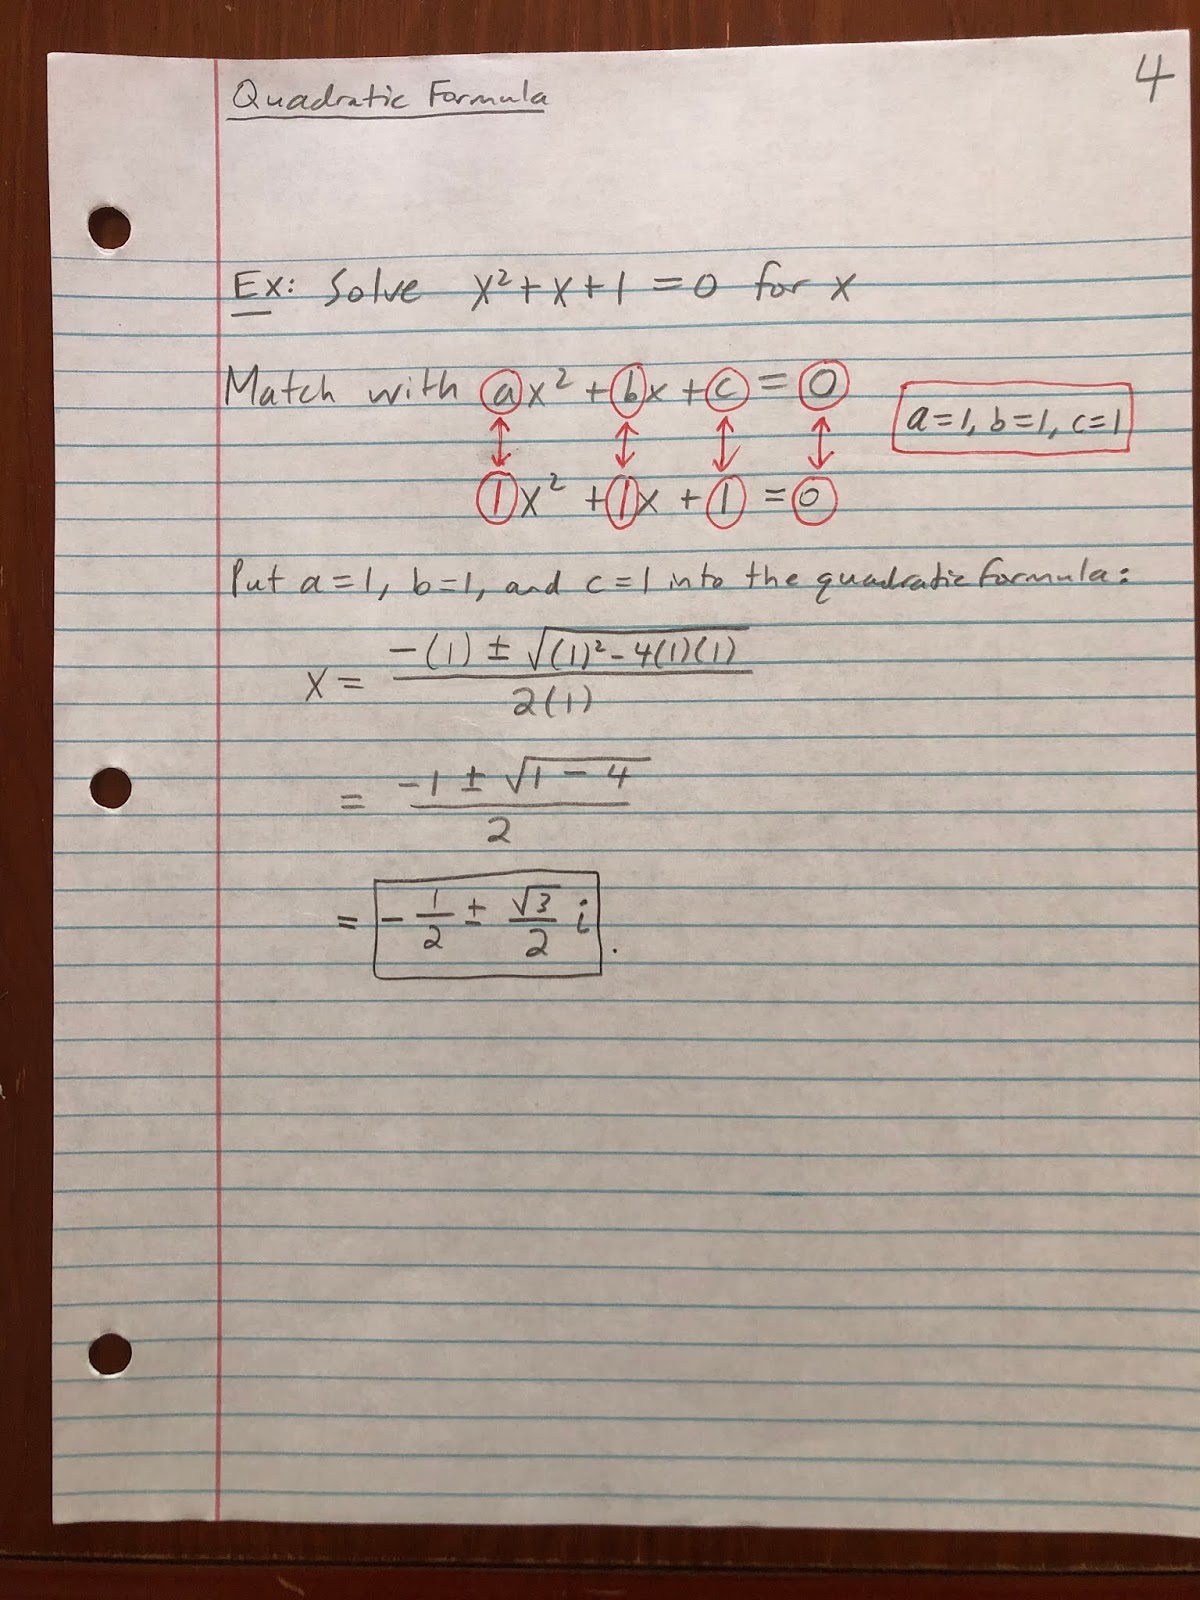 4
Quadratic Formula
Ex: Solve x²+x+1=0 for x
Match with ax² + bx + c = 0
a=1, b=1, c=1
1x² + 1x + 1 = 0
Put a=1, b=1, and c=1 into the quadratic formula:
x = (-(1) ± √((1)² - 4(1)(1))) / 2(1)
= (-1 ± √(1 - 4)) / 2
= -1/2 ± √3/2 i.